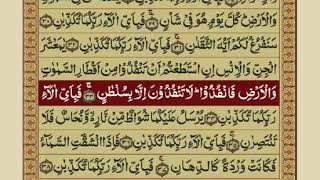 وَالْاَرْضِ كُلَّ يَوْمٍ هُوَ فِيْ شَاْنٍ ۝ فَبِاَيِّ اٰلَآءِ رَبِّكُمَا تُكَذِّبٰنِ ۝
سَنَفْرُغُ لَكُمْ اَيُّهَ الثَّقَلٰنِ ۝ فَبِاَيِّ اٰلَآءِ رَبِّكُمَا تُكَذِّبٰنِ ۝ يٰمَعْشَرَ
الْجِنِّ وَالْاِنْسِ اِنِ اسْتَطَعْتُمْ اَنْ تَنْفُذُوْا مِنْ اَقْطَارِ السَّمٰوٰتِ
وَالْاَرْضِ فَانْفُذُوْا ؕ لَا تَنْفُذُوْنَ اِلَّا بِسُلْطٰنٍ ۝ فَبِاَيِّ اٰلَآءِ
رَبِّكُمَا تُكَذِّبٰنِ ۝ يُرْسَلُ عَلَيْكُمَا شُوَاظٌ مِّنْ نَّارٍ ۙ وَّنُحَاسٌ فَلَا
تَنْتَصِرٰنِ ۝ فَبِاَيِّ اٰلَآءِ رَبِّكُمَا تُكَذِّبٰنِ ۝ فَاِذَا انْشَقَّتِ السَّمَآءُ
فَكَانَتْ وَرْدَةً كَالدِّهَانِ ۝ فَبِاَيِّ اٰلَآءِ رَبِّكُمَا تُكَذِّبٰنِ ۝